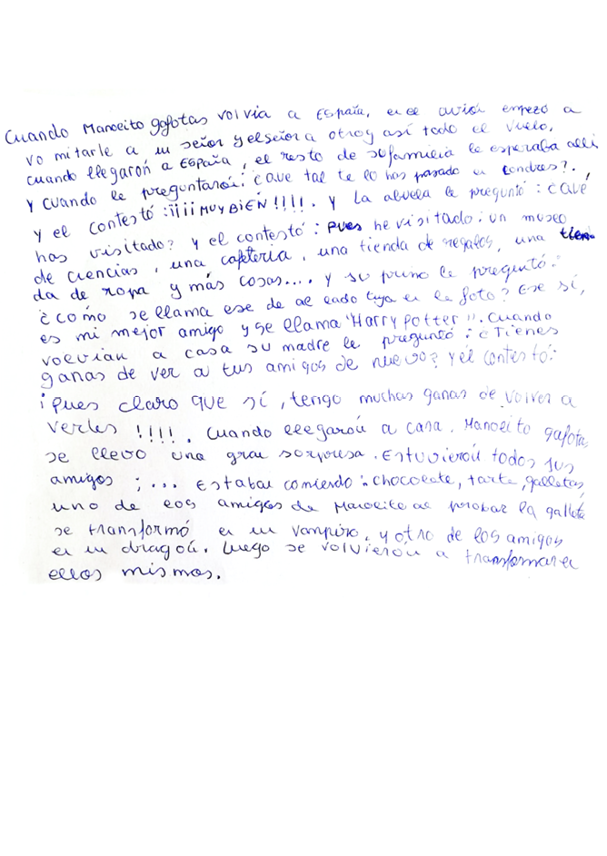 Cuando Manoeito gafotas volvia a España, en el avión empezó a
vomitarle a un señor y el señor a otro y así todo el vuelo.
cuando llegaron a España, el resto de su familia le esperaba alli
y cuando le preguntaron: ¿ave tal te lo has pasado en Londres?.
y el contestó: ¡¡¡¡MUY BIEN!!!!. y La abuela le preguntó: ¿ave
has visitado? y el contestó: Pues he visitado: un museo
de ciencias, una cafeteria, una tienda de regalos, una tien-
da de ropa y más cosas.... y su primo le preguntó:
¿como se llama ese de al lado tuya en la foto? Ese sí,
es mi mejor amigo y se llama "Harry Potter". Cuando
volvían a casa su madre le preguntó: ¿Tienes
ganas de ver a tus amigos de nuevo? y el contestó:
¡Pues claro que sí, tengo muchas ganas de volver a
verles!!!!. Cuando llegaron a casa. Manoeito gafotas
se llevo una gran sorpresa. Estuvieron todos sus
amigos;... Estaban comiendo: chocolate, tarta, galletas,
uno de los amigos de Manoeito al probar la galleta
se transformó en un vampiro, y otro de los amigos
en un dragón. Luego se volvieron a transformar en
ellos mismos.